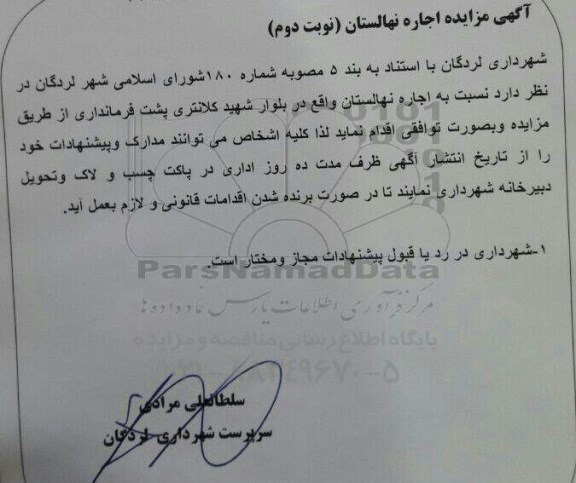 آگهی مزایده اجاره نهالستان (نوبت دوم)
شهرداری لردگان با استناد به بند ۵ مصوبه شماره ۱۸۰شورای اسلامی شهر لردگان در
نظر دارد نسبت به اجاره نهالستان واقع در بلوار شهید کلانتری پشت فرمانداری از طریق
مزایده وبصورت توافقی اقدام نماید لذا کلیه اشخاص می توانند مدارک وپیشنهادات خود
را از تاریخ انتشار آگهی ظرف مدت ده روز اداری در پاکت چسب و لاک وتحویل
دبیرخانه شهرداری نمایند تا در صورت برنده شدن اقدامات قانونی و لازم بعمل آید.
۱-شهرداری در رد یا قبول پیشنهادات مجاز ومختار است.
ParsNamadData
مرکز فرآوری اطلاعات پارس نماد داده ها
پایگاه اطلاع رسانی مناقصه و مزایده
۰۲۱-۸۸۳۴۹۶۷۰-۵
سلطانعلی مرادی
سرپرست شهرداری لردگان